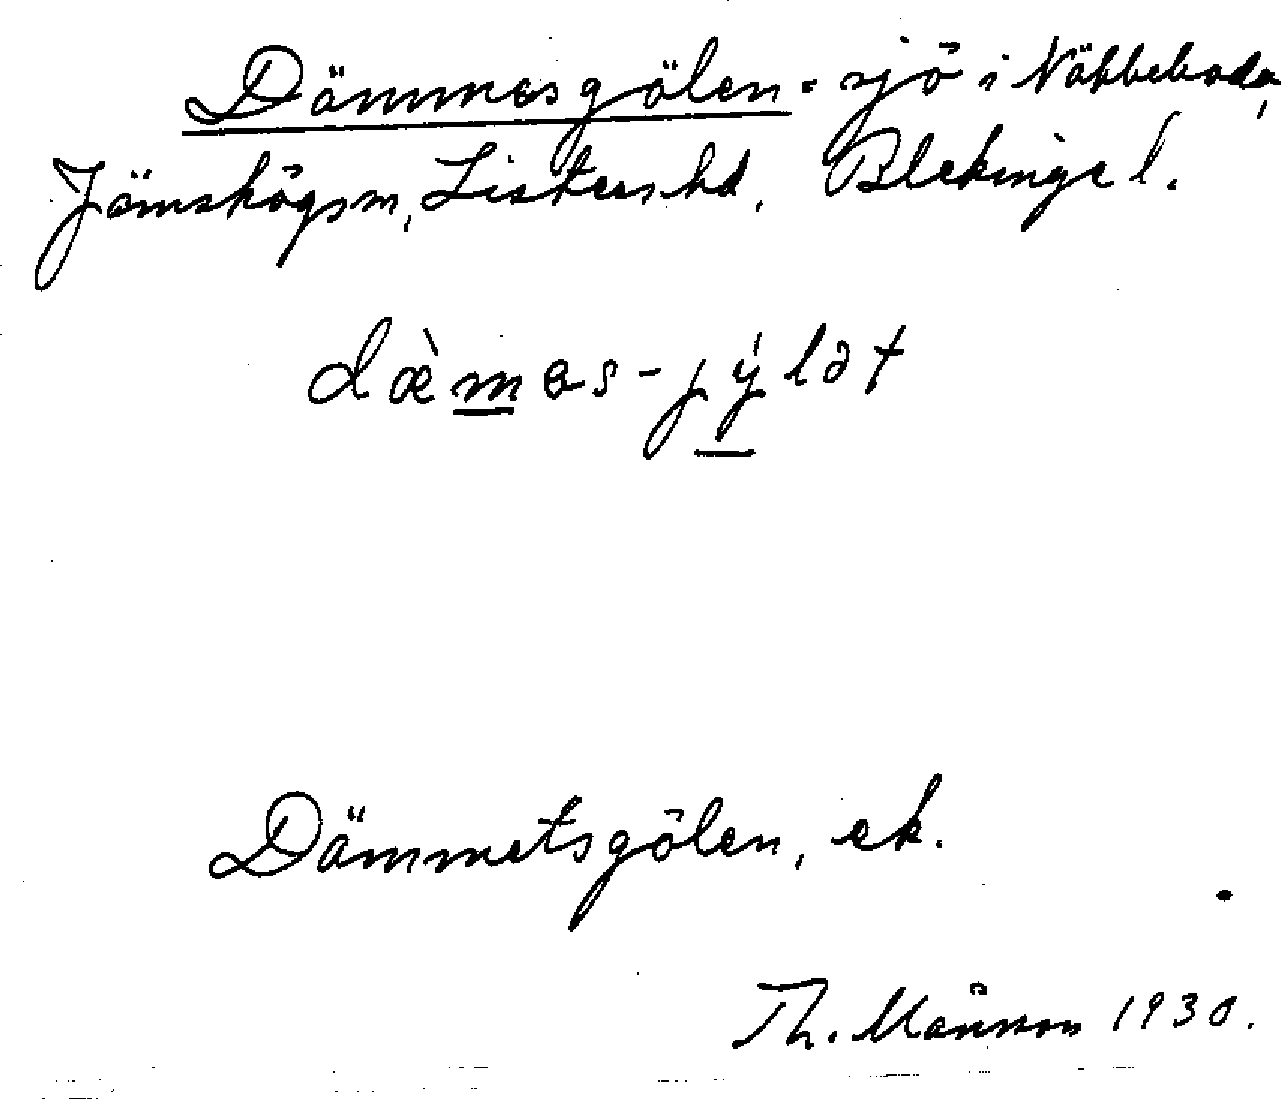 Dämmesgölen = sjö i Näbbeboda,
Jämshögs sn, Listers hd, Blekinge l.
dæ̀mɐs-jýlət
Dämmetsgölen, ek.
Th. Månsson 1930.